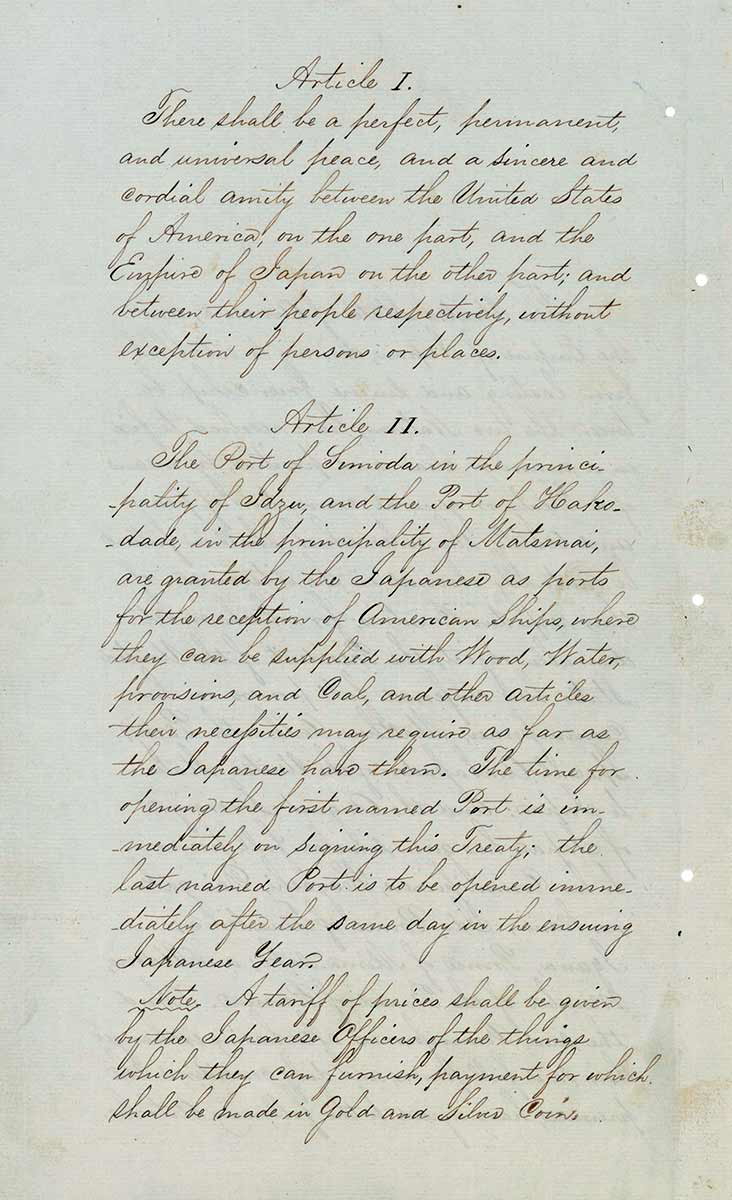 Article I.
There shall be a perfect, permanent,
and universal peace, and a sincere and
cordial amity between the United States
of America, on the one part, and the
Empire of Japan on the other part; and
between their people respectively, without
exception of persons or places.
Article II.
The Port of Simoda in the princi-
-pality of Idzu, and the Port of Hako-
-dade, in the principality of Matsmai,
are granted by the Japanese as ports
for the reception of American Ships, where
they can be supplied with Wood, Water,
provisions, and Coal, and other articles
their necessities may require as far as
the Japanese have them. The time for
opening the first named Port is im-
-mediately on signing this Treaty; the
last named Port is to be opened imme-
-diately after the same day in the ensuing
Japanese Year.
Note. A tariff of prices shall be given
by the Japanese Officers of the things
which they can furnish, payment for which
shall be made in Gold and Silver Coin.